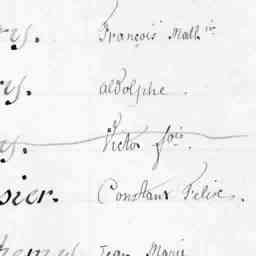 rs. François Math in
rs. aldolphe.
rs. Victor fois.
sier. Constant Felix.
Jean Marie